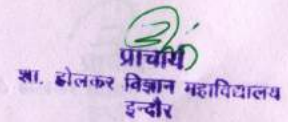 प्राचार्य
शा. होलकर विज्ञान महाविद्यालय
इन्दौर